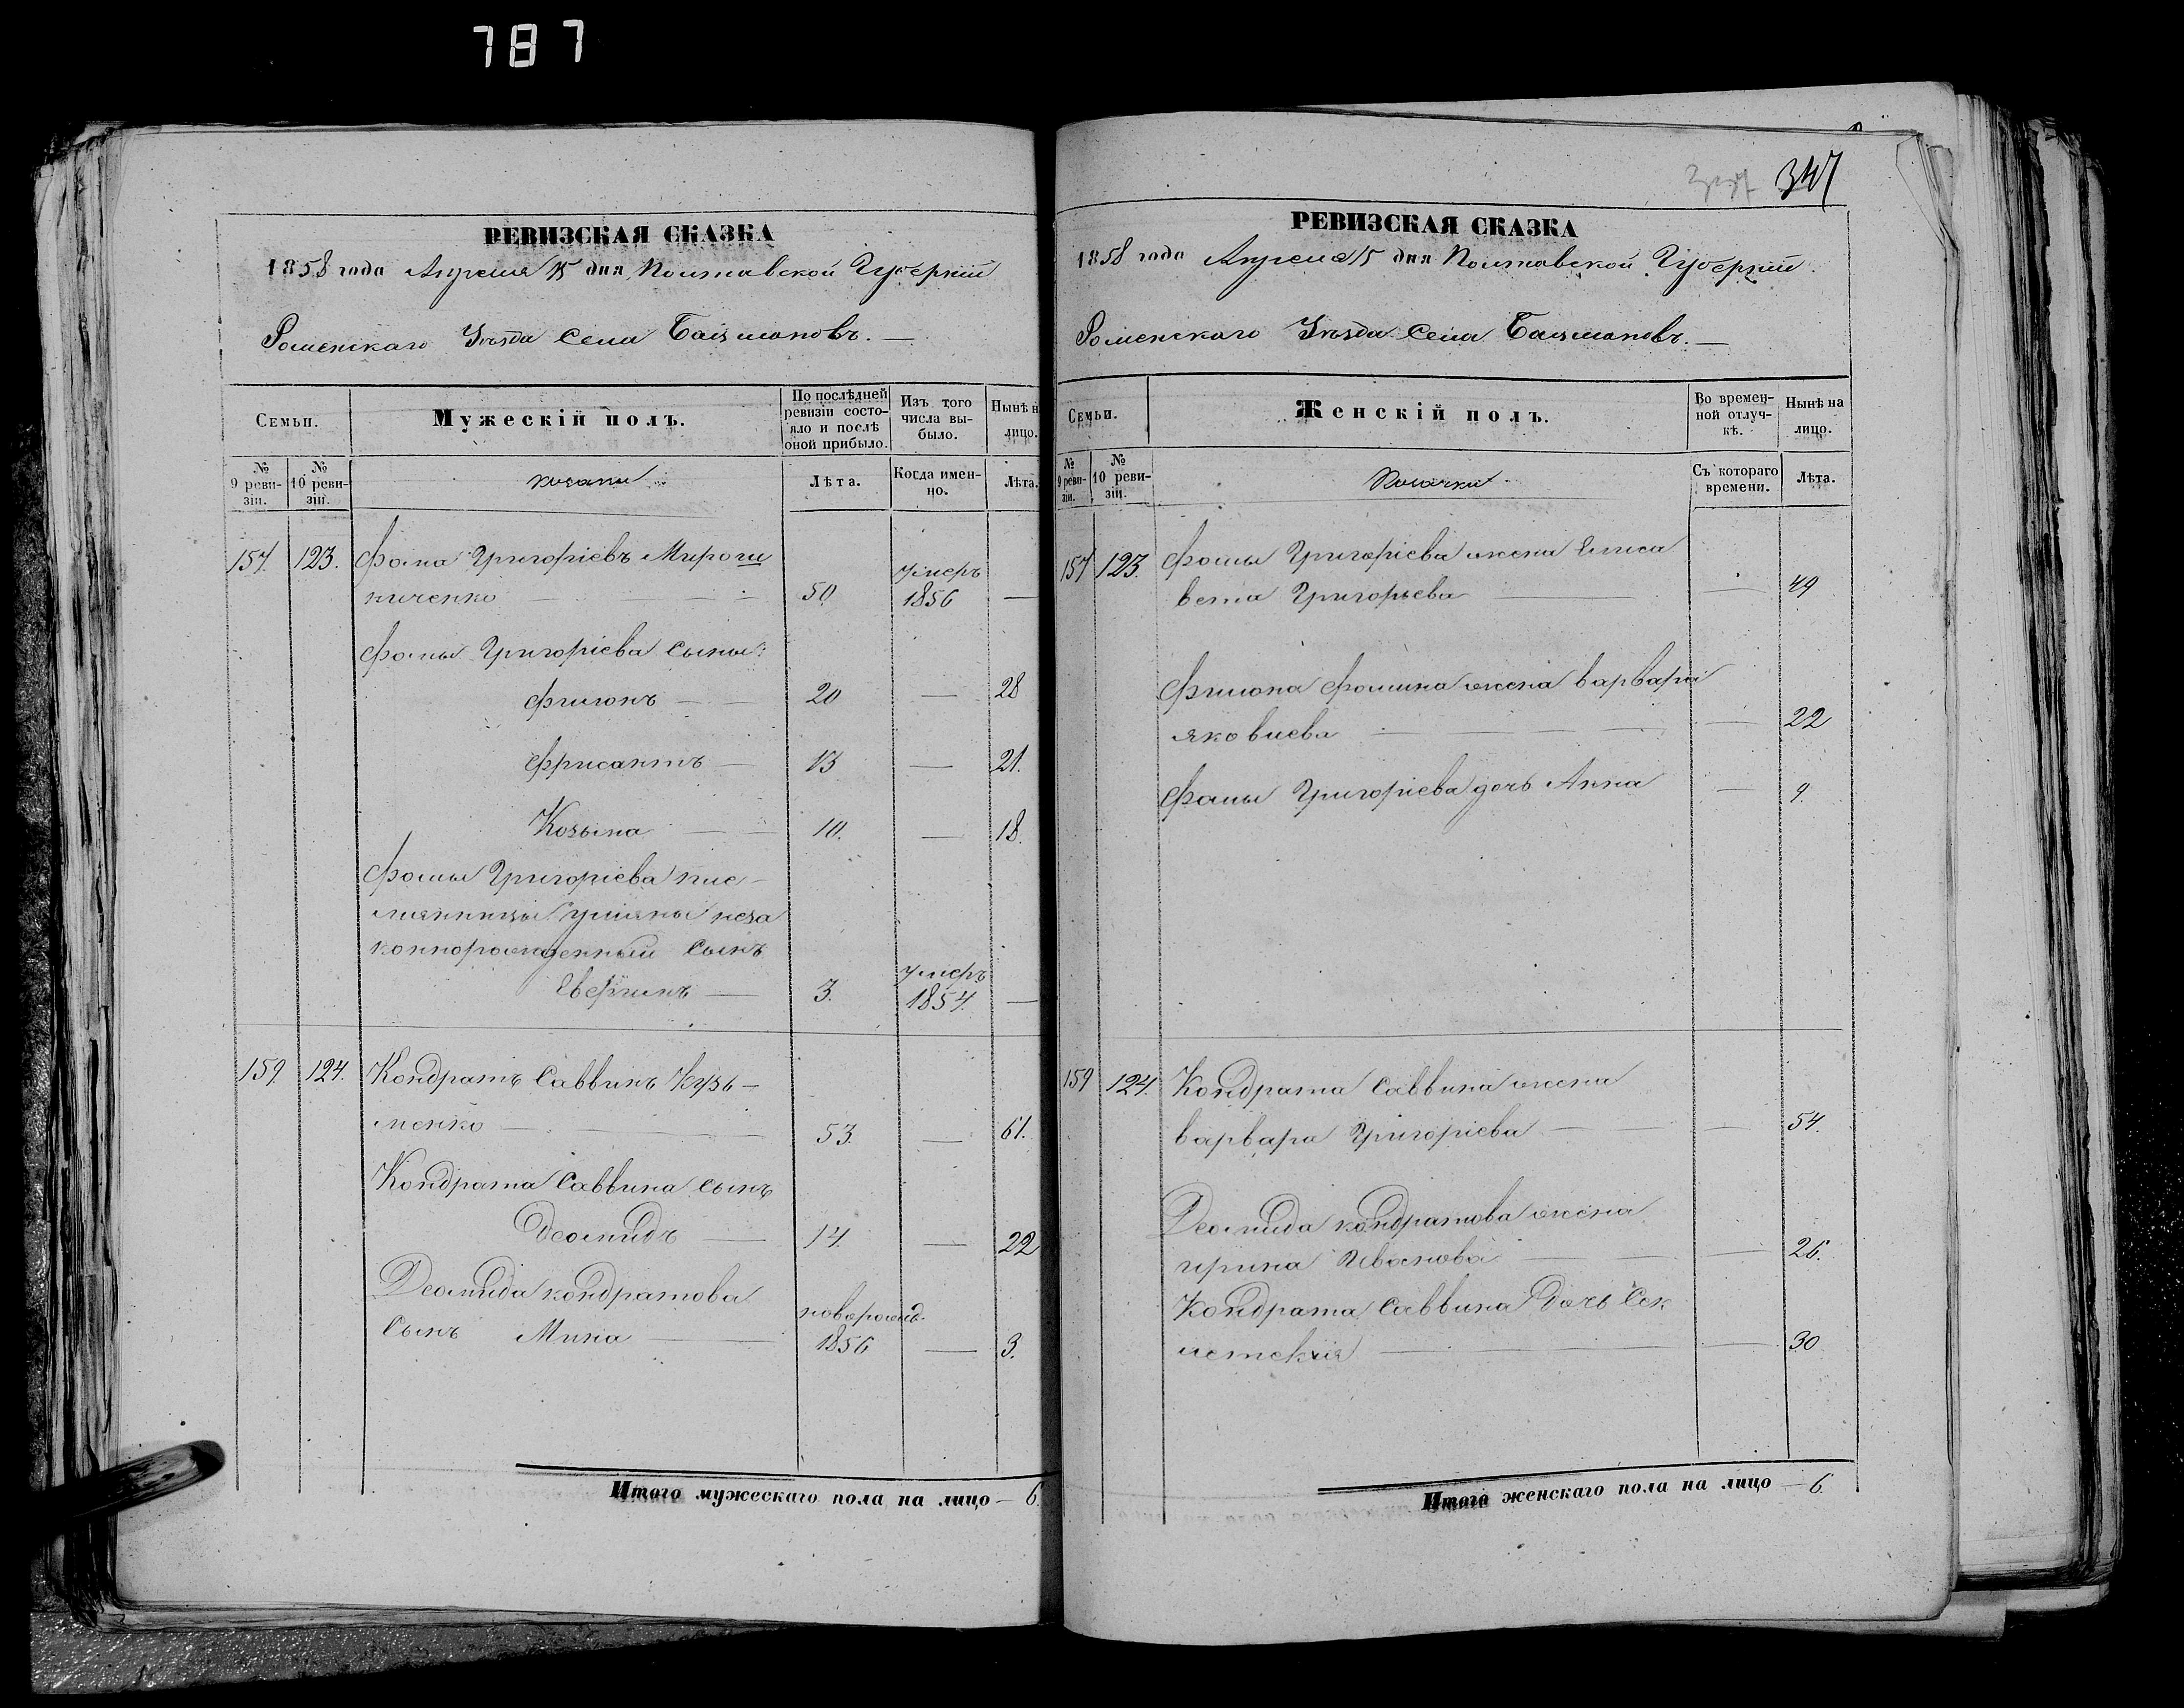 787
347
РЕВИЗСКАЯ СКАЗКА
1858 года Апреля 15 дня Полтавской Губерніи
Роменскаго Уѣзда Села Басмановъ.
Семьи.
Мужескій полъ.
По послѣдней ревизіи состояло и послѣ оной прибыло.
Изъ того числа выбыло.
Нынѣ на лицо.
№ 9 ревизіи.
№ 10 ревизіи.
козаки
Лѣта.
Когда именно.
Лѣта.
157. 123. Фома Григоріевъ Мирош
ниченко — 50. умеръ 1856 —
Фомы Григоріева сыны:
Филонъ — 20 — 28
Фрисантъ — 13 — 21.
Козьма — 10. — 18.
Фомы Григоріева пле-
мянницы Ульяны неза
коннорожденный сынъ
3. умеръ 1854. —
159. 124. Кондратъ Саввинъ Кузь-
менко — 53. — 61.
Кондрата Саввина сынъ
Деомидъ — 14. — 22
Деомида Кондратова
сынъ Мина — новорожд. 1856 — 3.
Итого мужескаго пола на лицо — 6.
РЕВИЗСКАЯ СКАЗКА
1858 года Апреля 15 дня Полтавской Губерніи.
Роменскаго Уѣзда Села Басмановъ. —
Семьи.
Женскій полъ.
Во временной отлучкѣ.
Нынѣ на лицо.
№ 9 ревизіи.
№ 10 ревизіи.
Козачки
Съ котораго времени.
Лѣта.
157 123. Фомы Григоріева жена Елиса
вета Григорьева — — 49
Филона Фомина жена Варвара
Яковлева — — 22
Фомы Григоріева дочь Анна — 9.
159 124. Кондрата Саввина жена
Варвара Григоріева — — 54.
Деомида Кондратова жена
Ирина Иванова — — 26.
Кондрата Саввина Дочь
— — 30
Итого женскаго пола на лицо — 6.